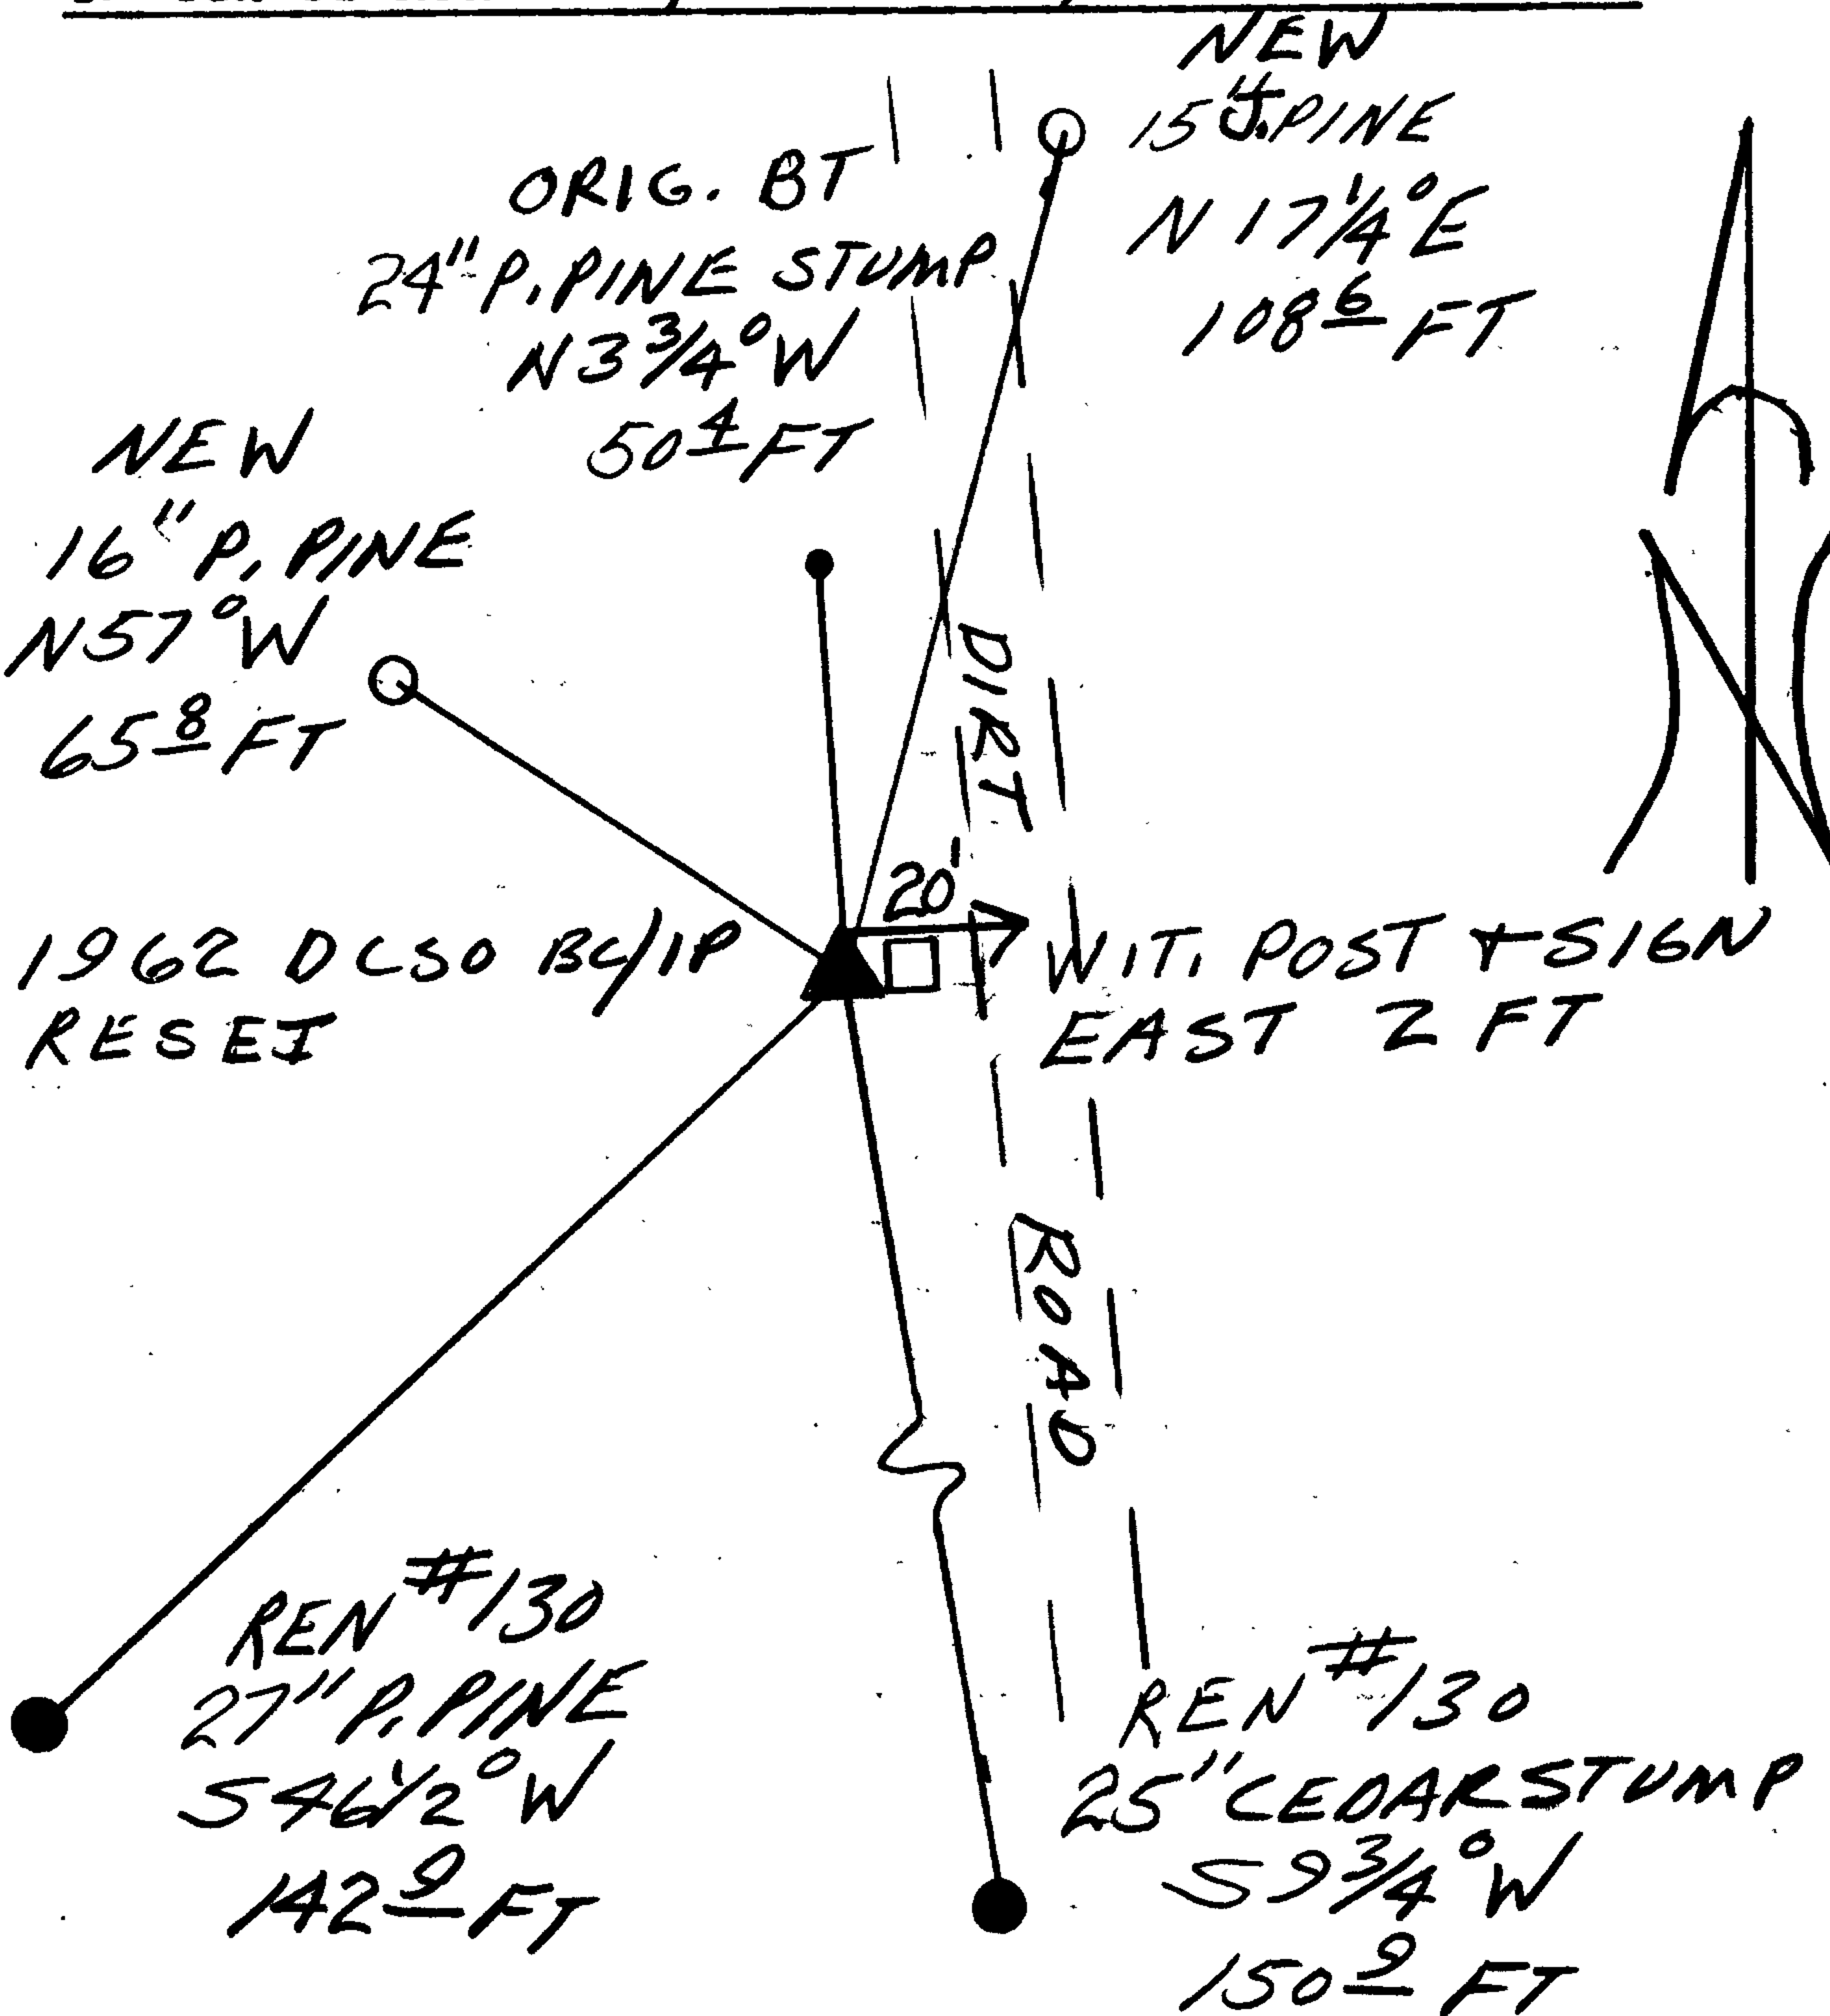 NEW
15" J. PINE
N 17 1/4° E
108 6 FT
ORIG. BT
24" P. PINE STUMP
N 3 3/4° W
50 4 FT
NEW
16" P. PINE
N57° W
65 8 FT
DIRT
20'
1962 DCSO BC/IP
RESET
WIT. POST + SIGN
EAST 2 FT
N
ROAD
REN #130
27" P. PINE
S 46 1/2° W
142 9 FT
REN #130
25" CEDAR STUMP
S 9 3/4° W
150 9 FT